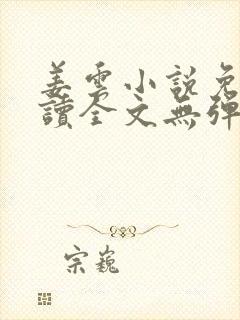 姜雲小說免
讀全文無彈
宗巍